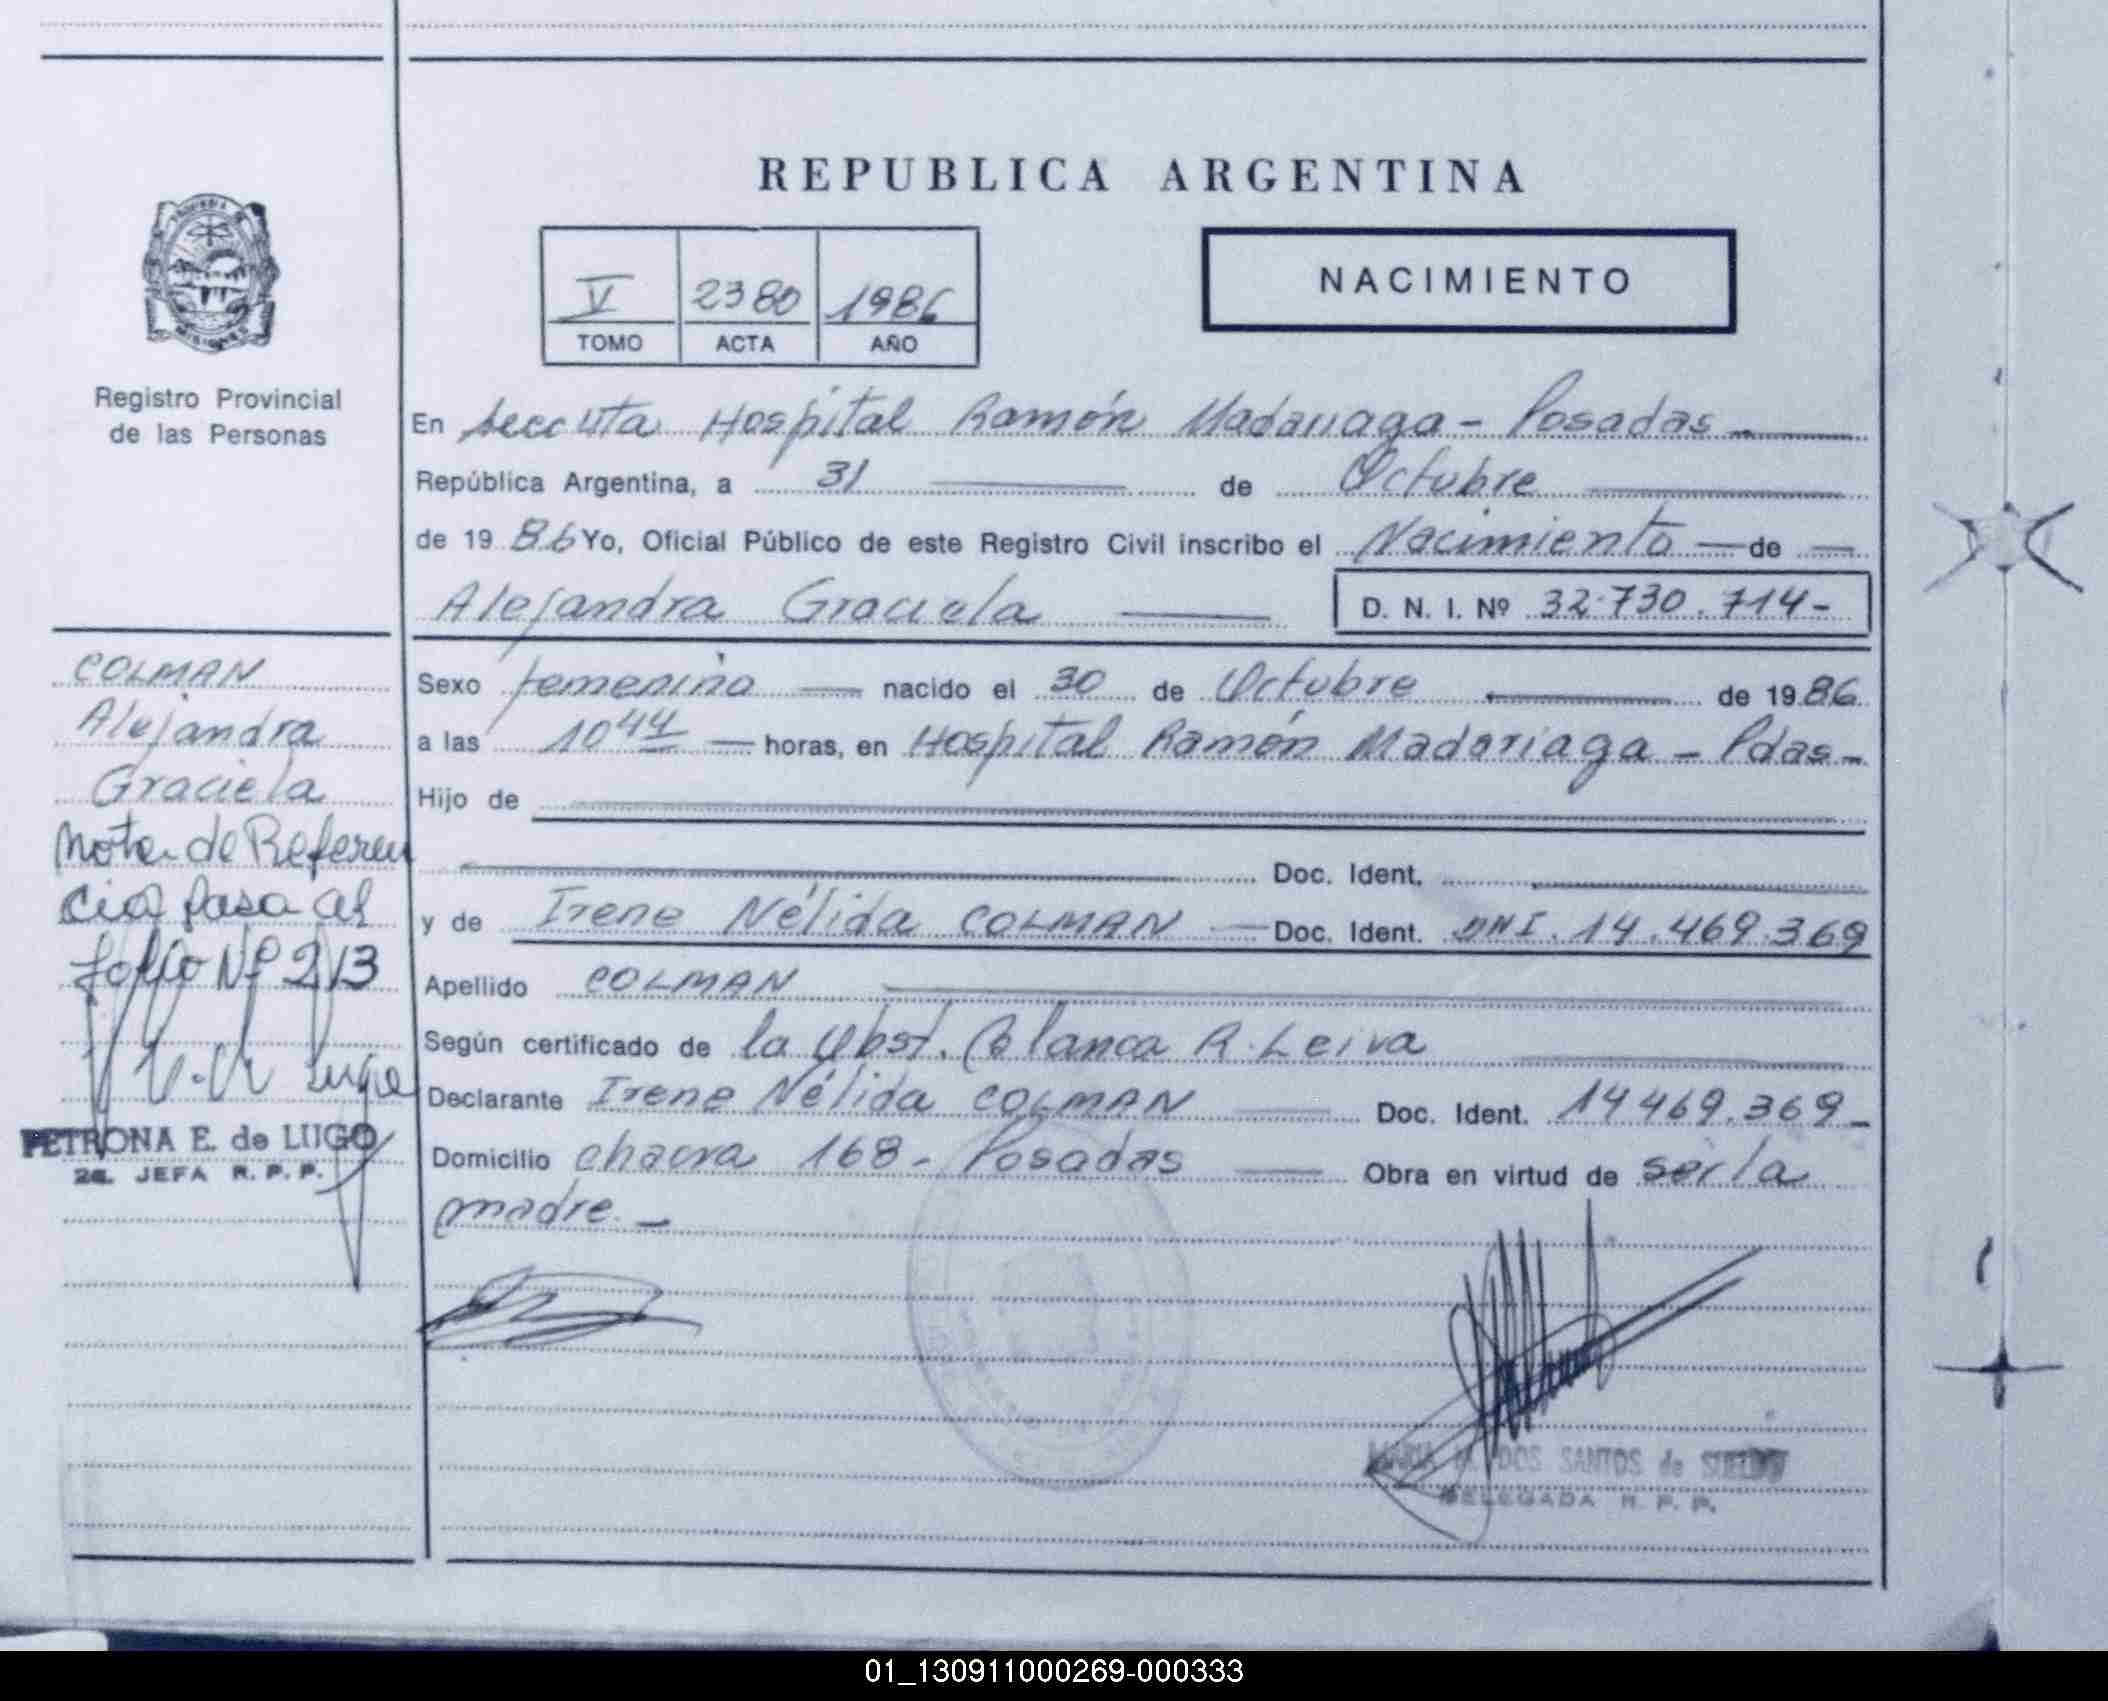 REPUBLICA ARGENTINA
V 2380 1986
TOMO ACTA AÑO
NACIMIENTO
Registro Provincial
de las Personas
En Secc 4ta Hospital Ramón Madariaga - Posadas -
República Argentina, a 31 de Octubre
de 1986 Yo, Oficial Público de este Registro Civil inscribo el Nacimiento de
Alejandra Graciela D. N. I. Nº 32.730.714-
COLMAN
Alejandra
Graciela
Nota de Referen
cia pasa al
folio Nº 213
Lugo
PETRONA E. de LUGO
2a. JEFA R. P. P.
Sexo femenino nacido el 30 de Octubre de 1986
a las 10 44 horas, en Hospital Ramón Madariaga - Pdas -
Hijo de
Doc. Ident.
y de Irene Nélida COLMAN Doc. Ident. DNI. 14.469.369
Apellido COLMAN
Según certificado de la Obst. Blanca R. Leiva
Declarante Irene Nélida COLMAN Doc. Ident. 14469.369 -
Domicilio chacra 168 - Posadas Obra en virtud de ser la
madre. -
MARIA M. DOS SANTOS de SUELDO
DELEGADA R. P. P.
01_130911000269-000333